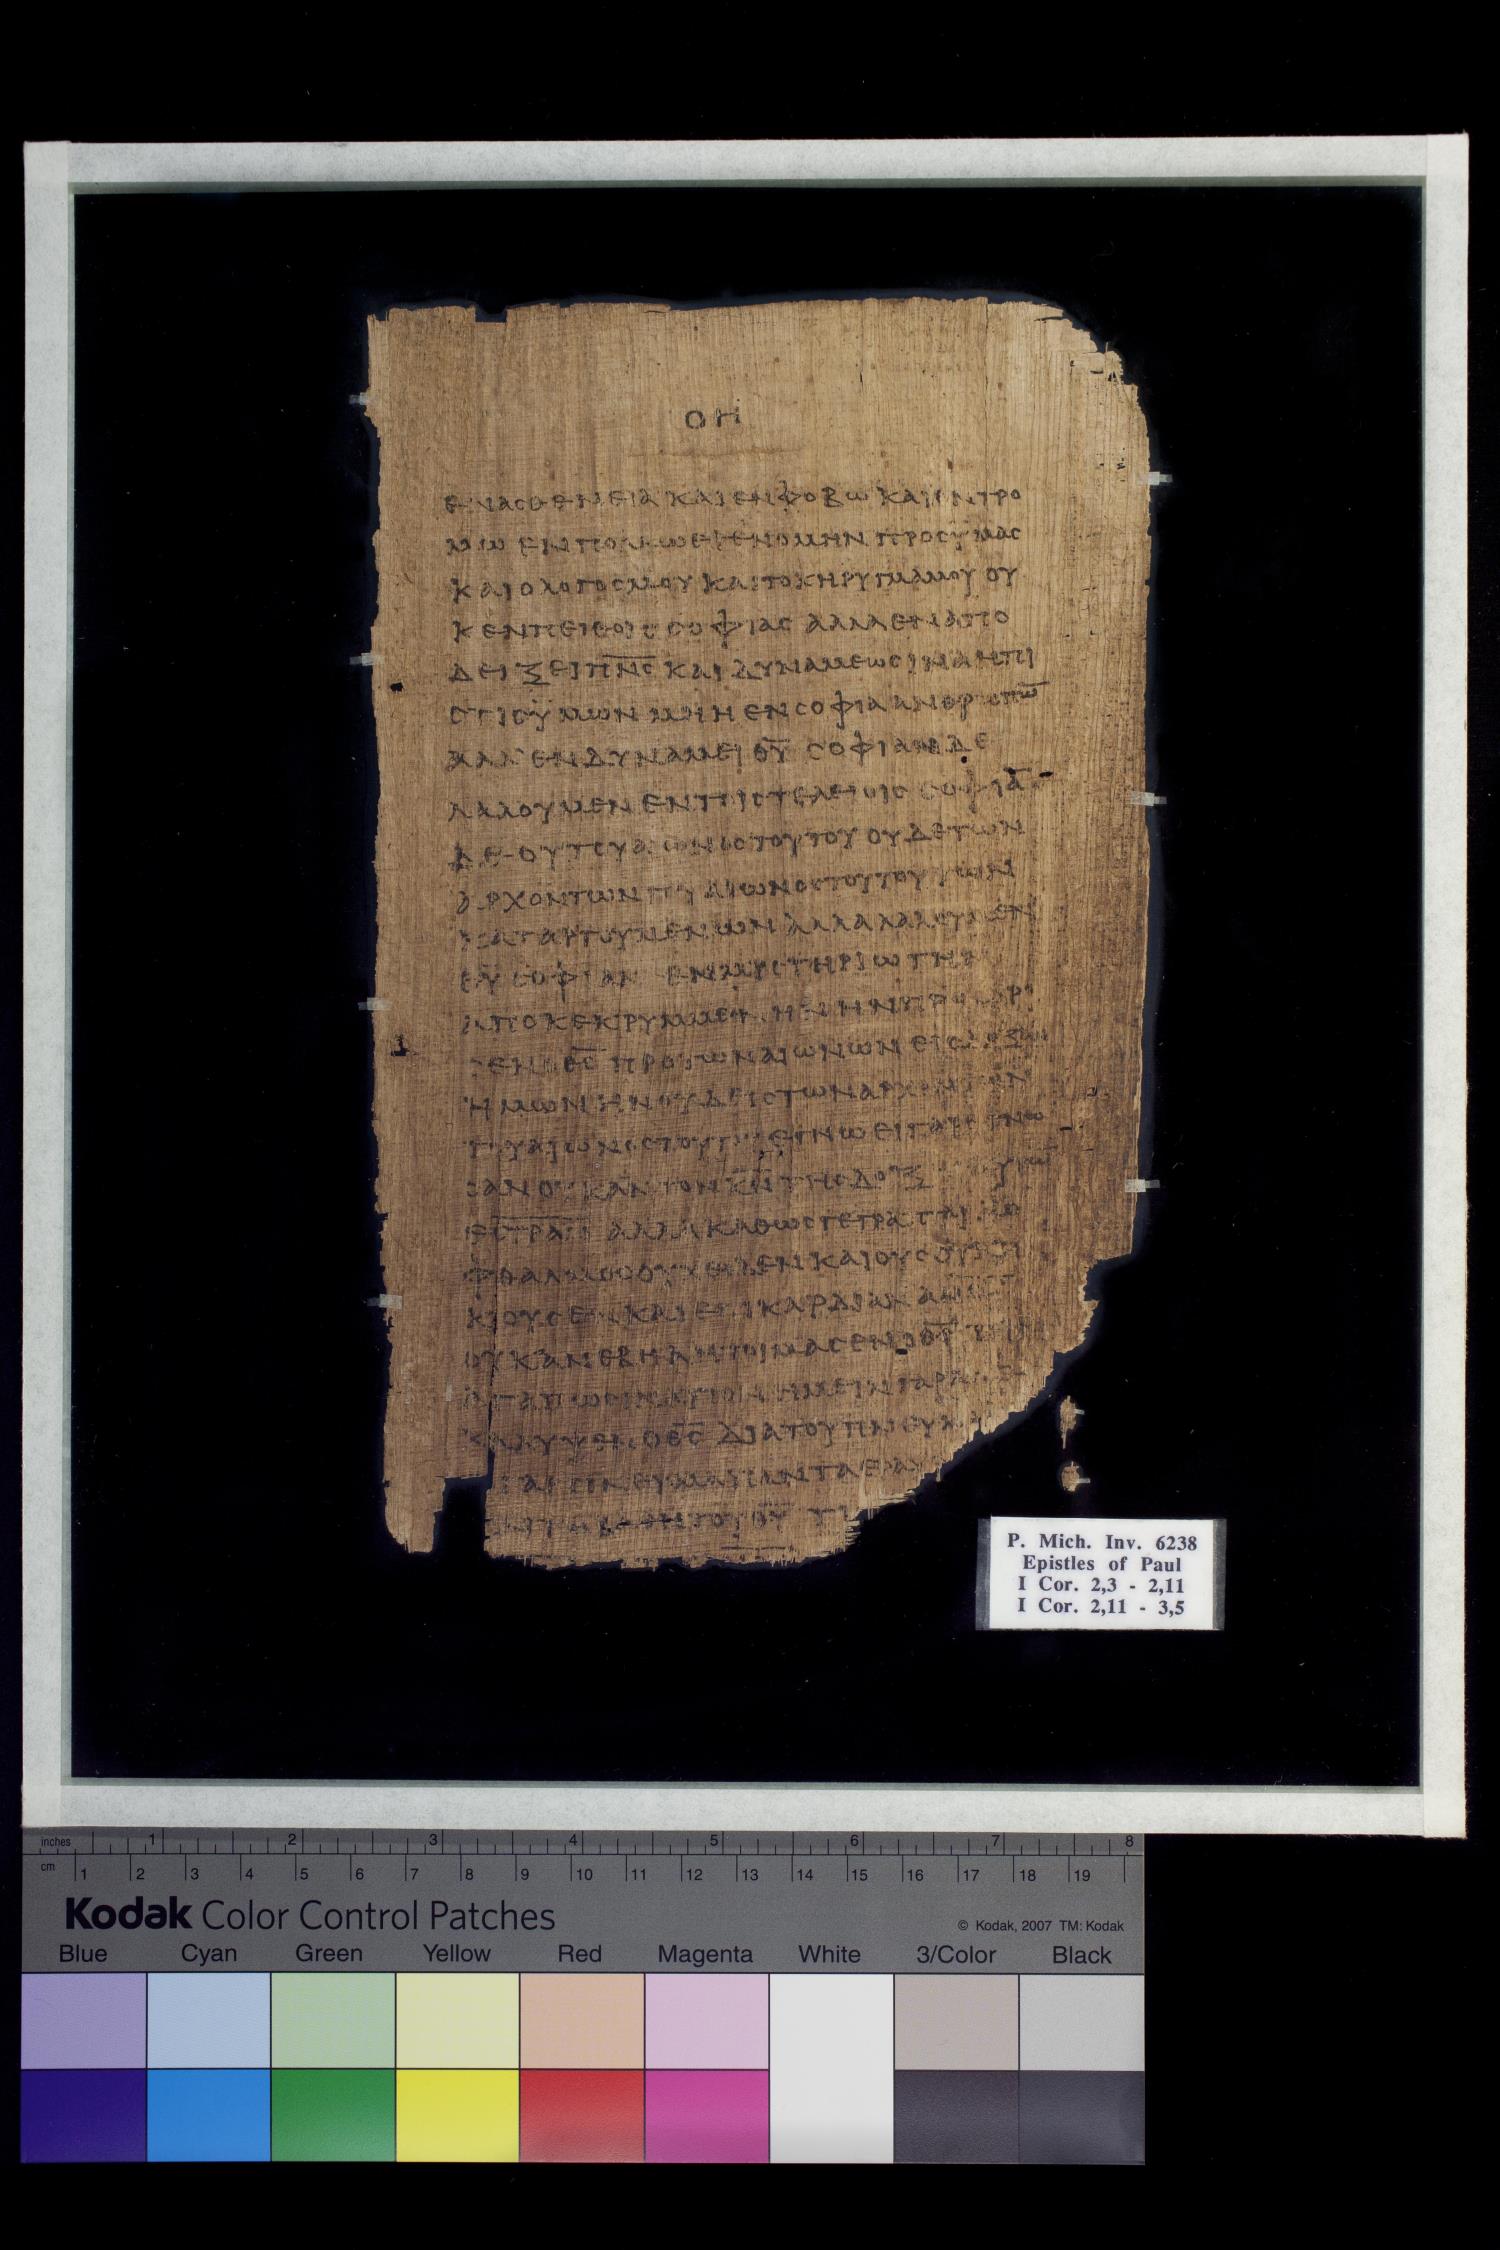 ΟΗ
ΕΝ ΑΣΘΕΝΕΙΑ ΚΑΙ ΕΝ ΦΟΒΩ ΚΑΙ ΕΝ ΤΡΟ
ΜΩ ΕΝ ΠΟΛΛΩ ΕΓΕΝΟΜΗΝ ΠΡΟΣ ΫΜΑΣ
ΚΑΙ Ο ΛΟΓΟΣ ΜΟΥ ΚΑΙ ΤΟ ΚΗΡΥΓΜΑ ΜΟΥ ΟΥ
Κ ΕΝ ΠΕΙΘΟΙΣ ΣΟΦΙΑΣ ΑΛΛΑ ΕΝ ΑΠΟ
ΔΕΙΞΕΙ Π̅Ν̅Σ̅ ΚΑΙ ΔΥΝΑΜΕΩΣ ΙΝΑ Η ΠΙ
ΣΤΙΣ ΫΜΩΝ ΜΗ Η ΕΝ ΣΟΦΙΑ ΑΝΘΡΩΠΩ̅
ΑΛΛ ΕΝ ΔΥΝΑΜΕΙ Θ̅Υ̅ ΣΟΦΙΑΝ ΔΕ
ΛΑΛΟΥΜΕΝ ΕΝ ΤΟΙΣ ΤΕΛΕΙΟΙΣ ΣΟΦΙΑ̅
ΔΕ ΟΥ ΤΟΥ ΑΙΩΝΟΣ ΤΟΥΤΟΥ ΟΥΔΕ ΤΩΝ
ΑΡΧΟΝΤΩΝ ΤΟΥ ΑΙΩΝΟΣ ΤΟΥΤΟΥ ΤΩΝ
ΚΑΤΑΡΓΟΥΜΕΝΩΝ ΑΛΛΑ ΛΑΛΟΥΜΕΝ
Θ̅Υ̅ ΣΟΦΙΑΝ ΕΝ ΜΥΣΤΗΡΙΩ ΤΗΝ
ΑΠΟΚΕΚΡΥΜΜΕΝΗΝ ΗΝ ΠΡΟΩΡΙ
ΣΕΝ Ο Θ̅Σ̅ ΠΡΟ ΤΩΝ ΑΙΩΝΩΝ ΕΙΣ ΔΟΞΑΝ
ΗΜΩΝ ΗΝ ΟΥΔΕΙΣ ΤΩΝ ΑΡΧΟΝΤΩΝ
ΤΟΥ ΑΙΩΝΟΣ ΤΟΥΤΟΥ ΕΓΝΩ ΕΙ ΓΑΡ ΕΓΝΩ
ΣΑΝ ΟΥΚ ΑΝ ΤΟΝ Κ̅Ν̅ ΤΗΣ ΔΟΞΗΣ
ΑΛΛΑ ΚΑΘΩΣ ΓΕΓΡΑΠΤΑΙ
ΦΘΑΛΜΟΣ ΟΥΧ ΕΙΔΕΝ ΚΑΙ ΟΥΣ ΟΥΚ
ΗΚΟΥΣΕΝ ΚΑΙ ΕΠΙ ΚΑΡΔΙΑΝ
ΟΥΚ ΑΝΕΒΗ Α ΗΤΟΙΜΑΣΕΝ Ο Θ̅Σ̅ ΤΟΙΣ
ΑΓΑΠΩΣΙΝ ΑΥΤΟΝ ΗΜΕΙΝ ΓΑΡ
ΚΑΛΥΨΕΝ Ο Θ̅Σ̅ ΔΙΑ ΤΟΥ ΠΝΕΥΜΑ
ΓΑΡ ΠΝΕΥΜΑ ΠΑΝΤΑ ΕΡΑΥ
ΤΟΥ Θ̅Υ̅ ΤΙ
P. Mich. Inv. 6238
Epistles of Paul
I Cor. 2,3 - 2,11
I Cor. 2,11 - 3,5
inches 1 2 3 4 5 6 7 8
cm 1 2 3 4 5 6 7 8 9 10 11 12 13 14 15 16 17 18 19
Kodak Color Control Patches
© Kodak, 2007 TM: Kodak
Blue Cyan Green Yellow Red Magenta White 3/Color Black